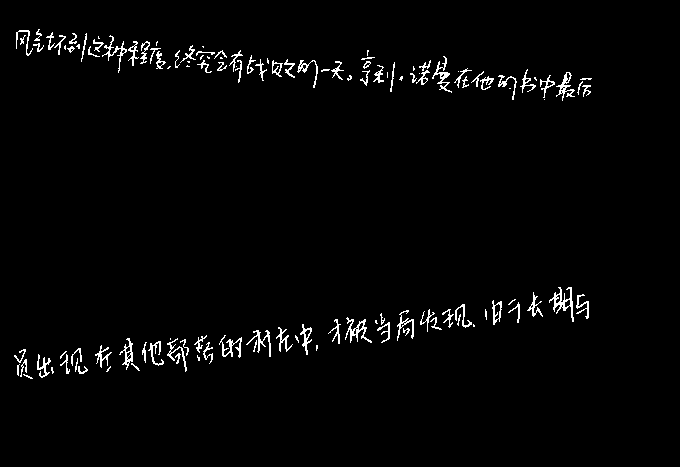 风气坏到这种程度,终究会有战败的一天。亨利。诺曼在他的书中最后
员出现在其他部落的村庄中,才被当局发现.由于长期与